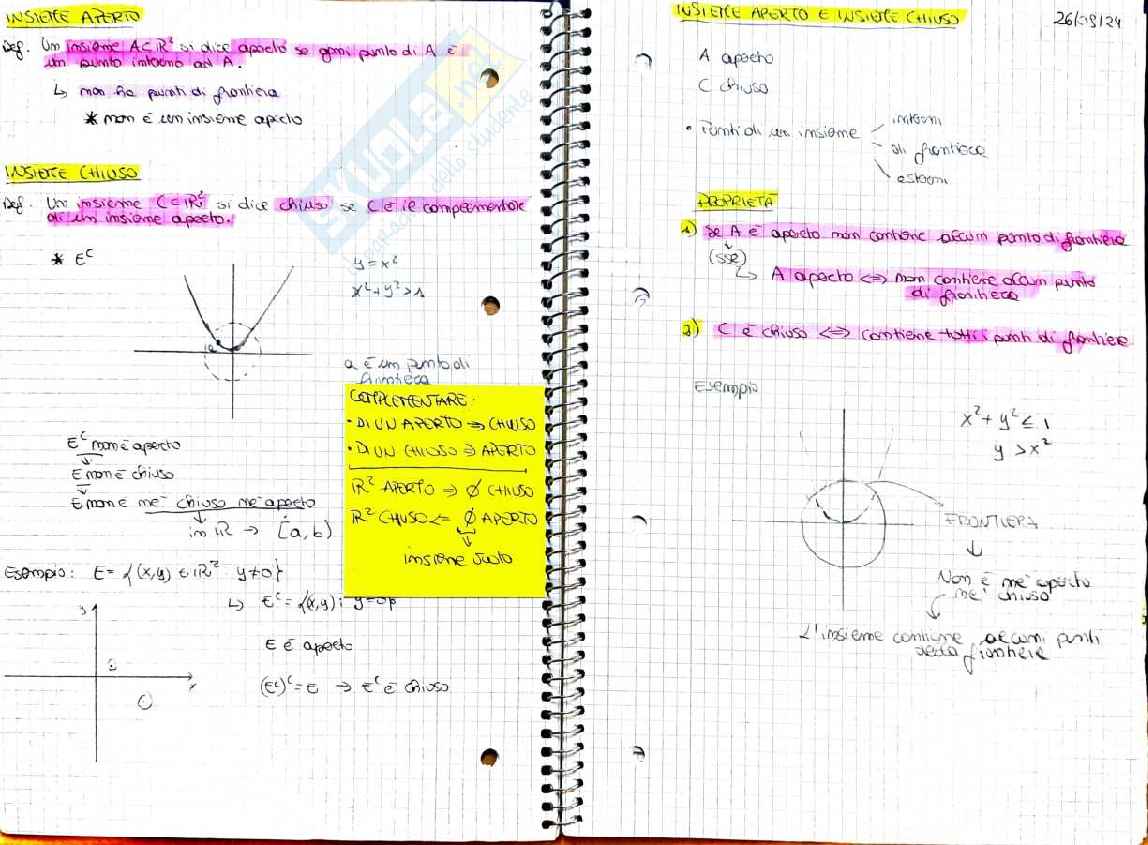 INSIEME APERTO
Def. Un insieme A⊂ℝ² si dice aperto se ogni punto di A è
un punto interno ad A.
↳ non ha punti di frontiera
* non è un insieme aperto
INSIEME CHIUSO
Def. Un insieme C⊂ℝ² si dice chiuso se C è il complementare
di un insieme aperto.
* Eᶜ
y = x²
x²+y²>1
a è un punto di
frontiera
COMPLEMENTARE:
• DI UN APERTO ⇒ CHIUSO
• DI UN CHIUSO ⇒ APERTO
ℝ² APERTO ⇒ ∅ CHIUSO
ℝ² CHIUSO ⇐ ∅ APERTO
insieme vuoto
Eᶜ non è aperto
E non è chiuso
E non è né chiuso né aperto
in ℝ → [a, b)
Esempio: E = {(x,y) ∈ ℝ² y≠0}
↳ Eᶜ = {(x,y): y=0}
E è aperto
(Eᶜ)ᶜ = E → Eᶜ è chiuso
INSIEME APERTO E INSIEME CHIUSO
A aperto
C chiuso
• Punti di un insieme
interni
di frontiera
esterni
PROPRIETÀ
1) Se A è aperto non contiene alcun punto di frontiera
(sse)
↳ A aperto ⇔ non contiene alcun punto
di frontiera
2) C è chiuso ⇔ contiene tutti i punti di frontiera
Esempio
x² + y² ≤ 1
y > x²
FRONTIERA
Non è né aperto
né chiuso
L'insieme contiene alcuni punti
della frontiera
skuola.net
dello studente